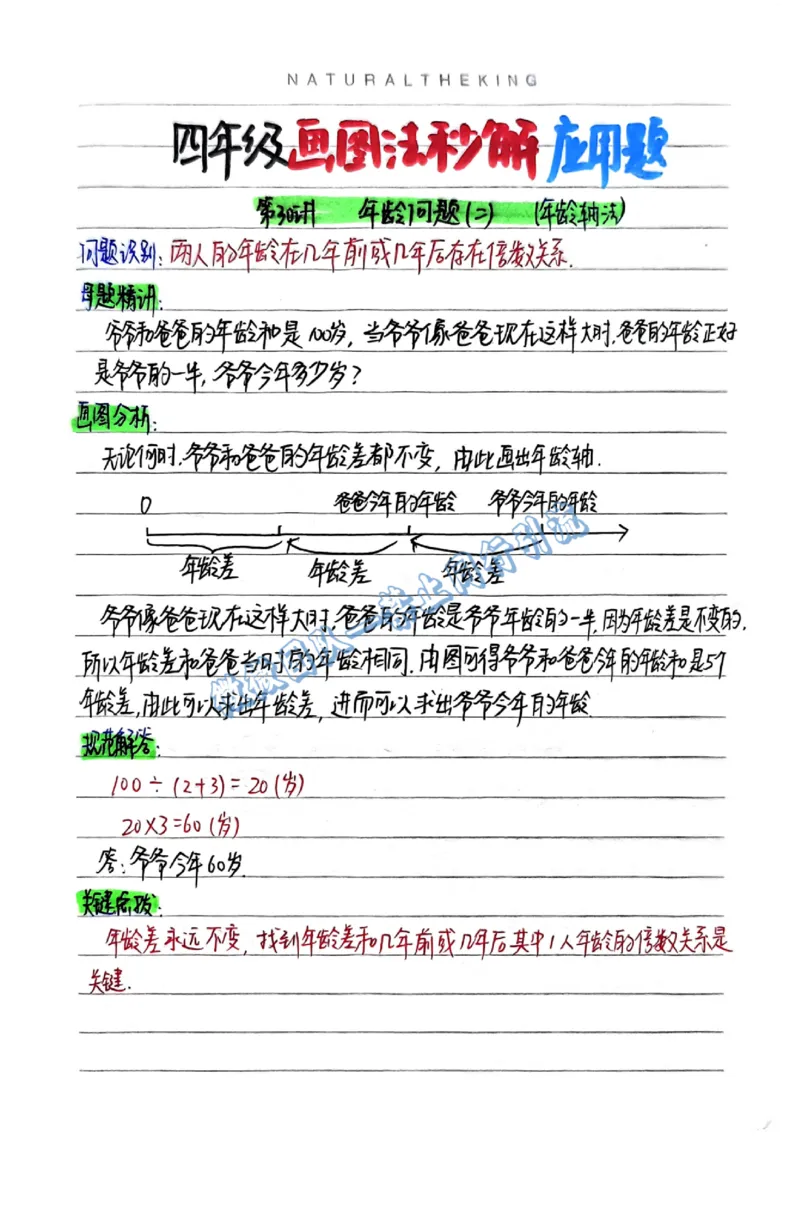 NATURALTHEKING
四年级画图法秒解应用题
第30讲 年龄问题(二) (年龄轴法)
问题识别:两人的年龄在几年前或几年后存在倍数关系.
母题精讲:
爷爷和爸爸的年龄和是100岁,当爷爷像爸爸现在这样大时,爸爸的年龄正好
是爷爷的一半,爷爷今年多少岁?
画图分析:
无论何时,爷爷和爸爸的年龄差都不变,由此画出年龄轴.
0 爸爸今年的年龄 爷爷今年的年龄
年龄差 年龄差 年龄差
爷爷像爸爸现在这样大时,爸爸的年龄是爷爷年龄的一半,因为年龄差是不变的,
所以年龄差和爸爸当时的年龄相同.由图可得爷爷和爸爸今年的年龄和是5个
年龄差,由此可以求出年龄差,进而可以求出爷爷今年的年龄.
规范解答:
100÷(2+3)=20(岁)
20×3=60(岁)
答:爷爷今年60岁.
关键点拨:
年龄差永远不变,找到年龄差和几年前或几年后其中1人年龄的倍数关系是
关键.